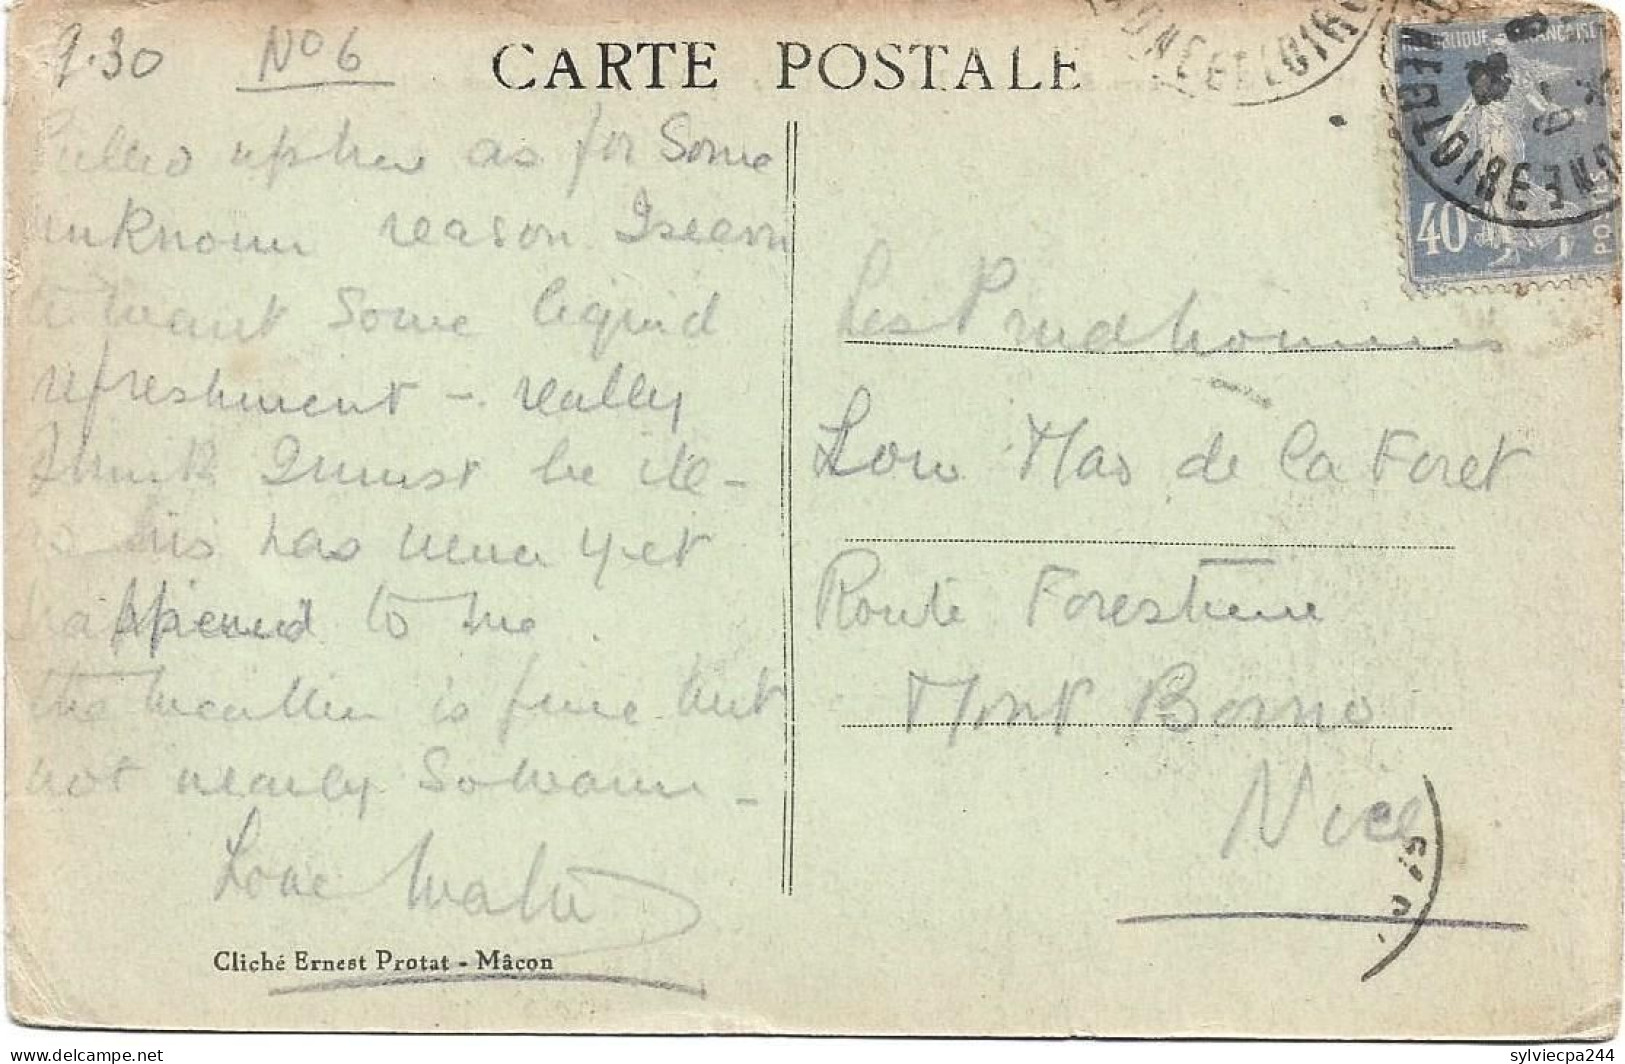 9.30 No 6
CARTE POSTALE
Pulled up here as for Some
unknown reason I seem
to want Some liquid
refreshment - really
I think I must be ill -
as this has never yet
happened to me.
the weather is fine but
not nearly So warm -
Love Walter
Cliché Ernest Protat - Mâcon
RÉPUBLIQUE FRANÇAISE
40c
POSTES
SAONE ET LOIRE
Les Prudhommes
Lou Mas de la Foret
Route Forestiere
Mont Borno
Nice
sylviecpa244